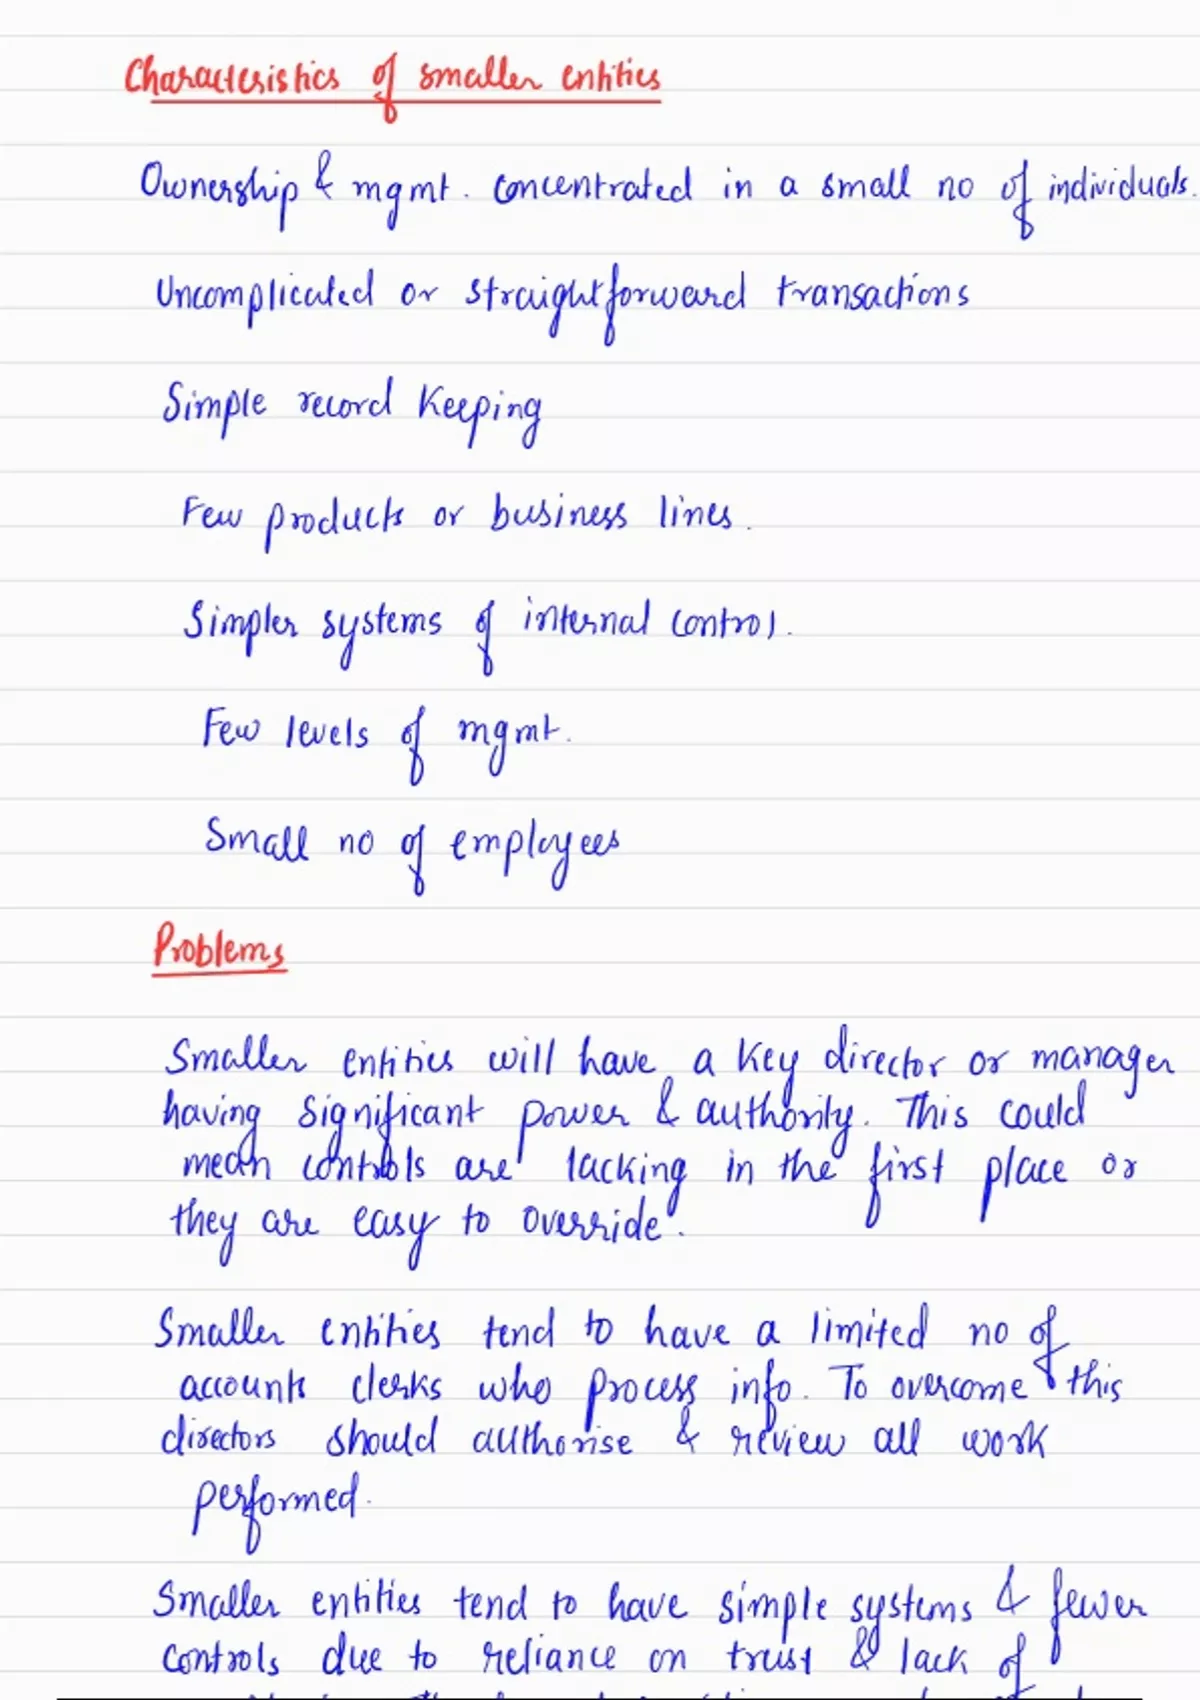 Characteristics of smaller entities
Ownership & mgmt. concentrated in a small no of individuals.
Uncomplicated or straightforward transactions
Simple record keeping
Few products or business lines.
Simpler systems of internal control.
Few levels of mgmt.
Small no of employees
Problems
Smaller entities will have a key director or manager
having significant power & authority. This could
mean controls are lacking in the first place or
they are easy to override.
Smaller entities tend to have a limited no of
accounts clerks who process info. To overcome this
directors should authorise & review all work
performed.
Smaller entities tend to have simple systems & fewer
controls due to reliance on trust & lack of